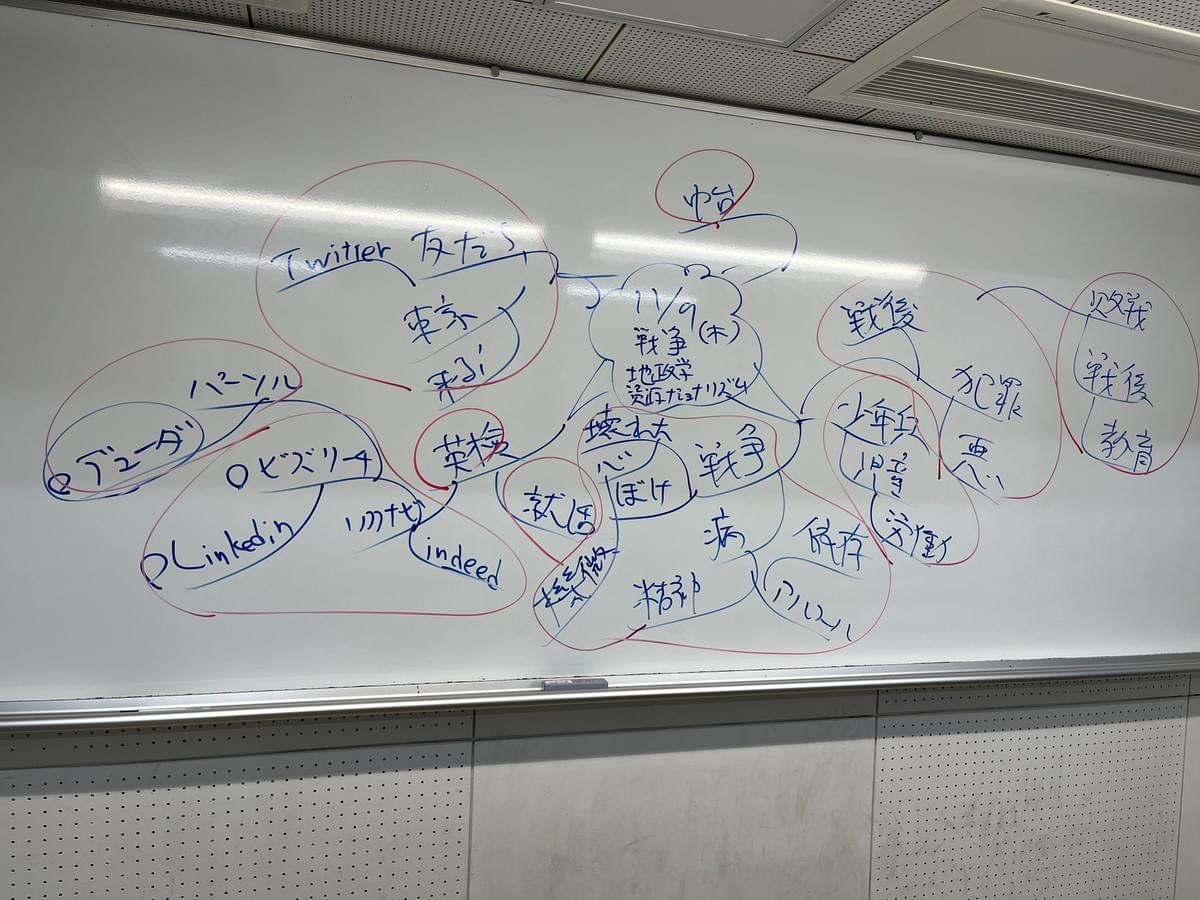 中台
Twitter 友だち
東京
来る
11/9
(木)
戦争
地政学
資源ナショナリズム
戦後
敗戦
戦後
教育
犯罪
悪い
少年兵
児童
労働
パーソル
デューダ
ビズリーチ
Linkedin
リクナビ
indeed
英検
就活
壊れた
心
ぼけ
戦争
病
依存
精神
アルコール